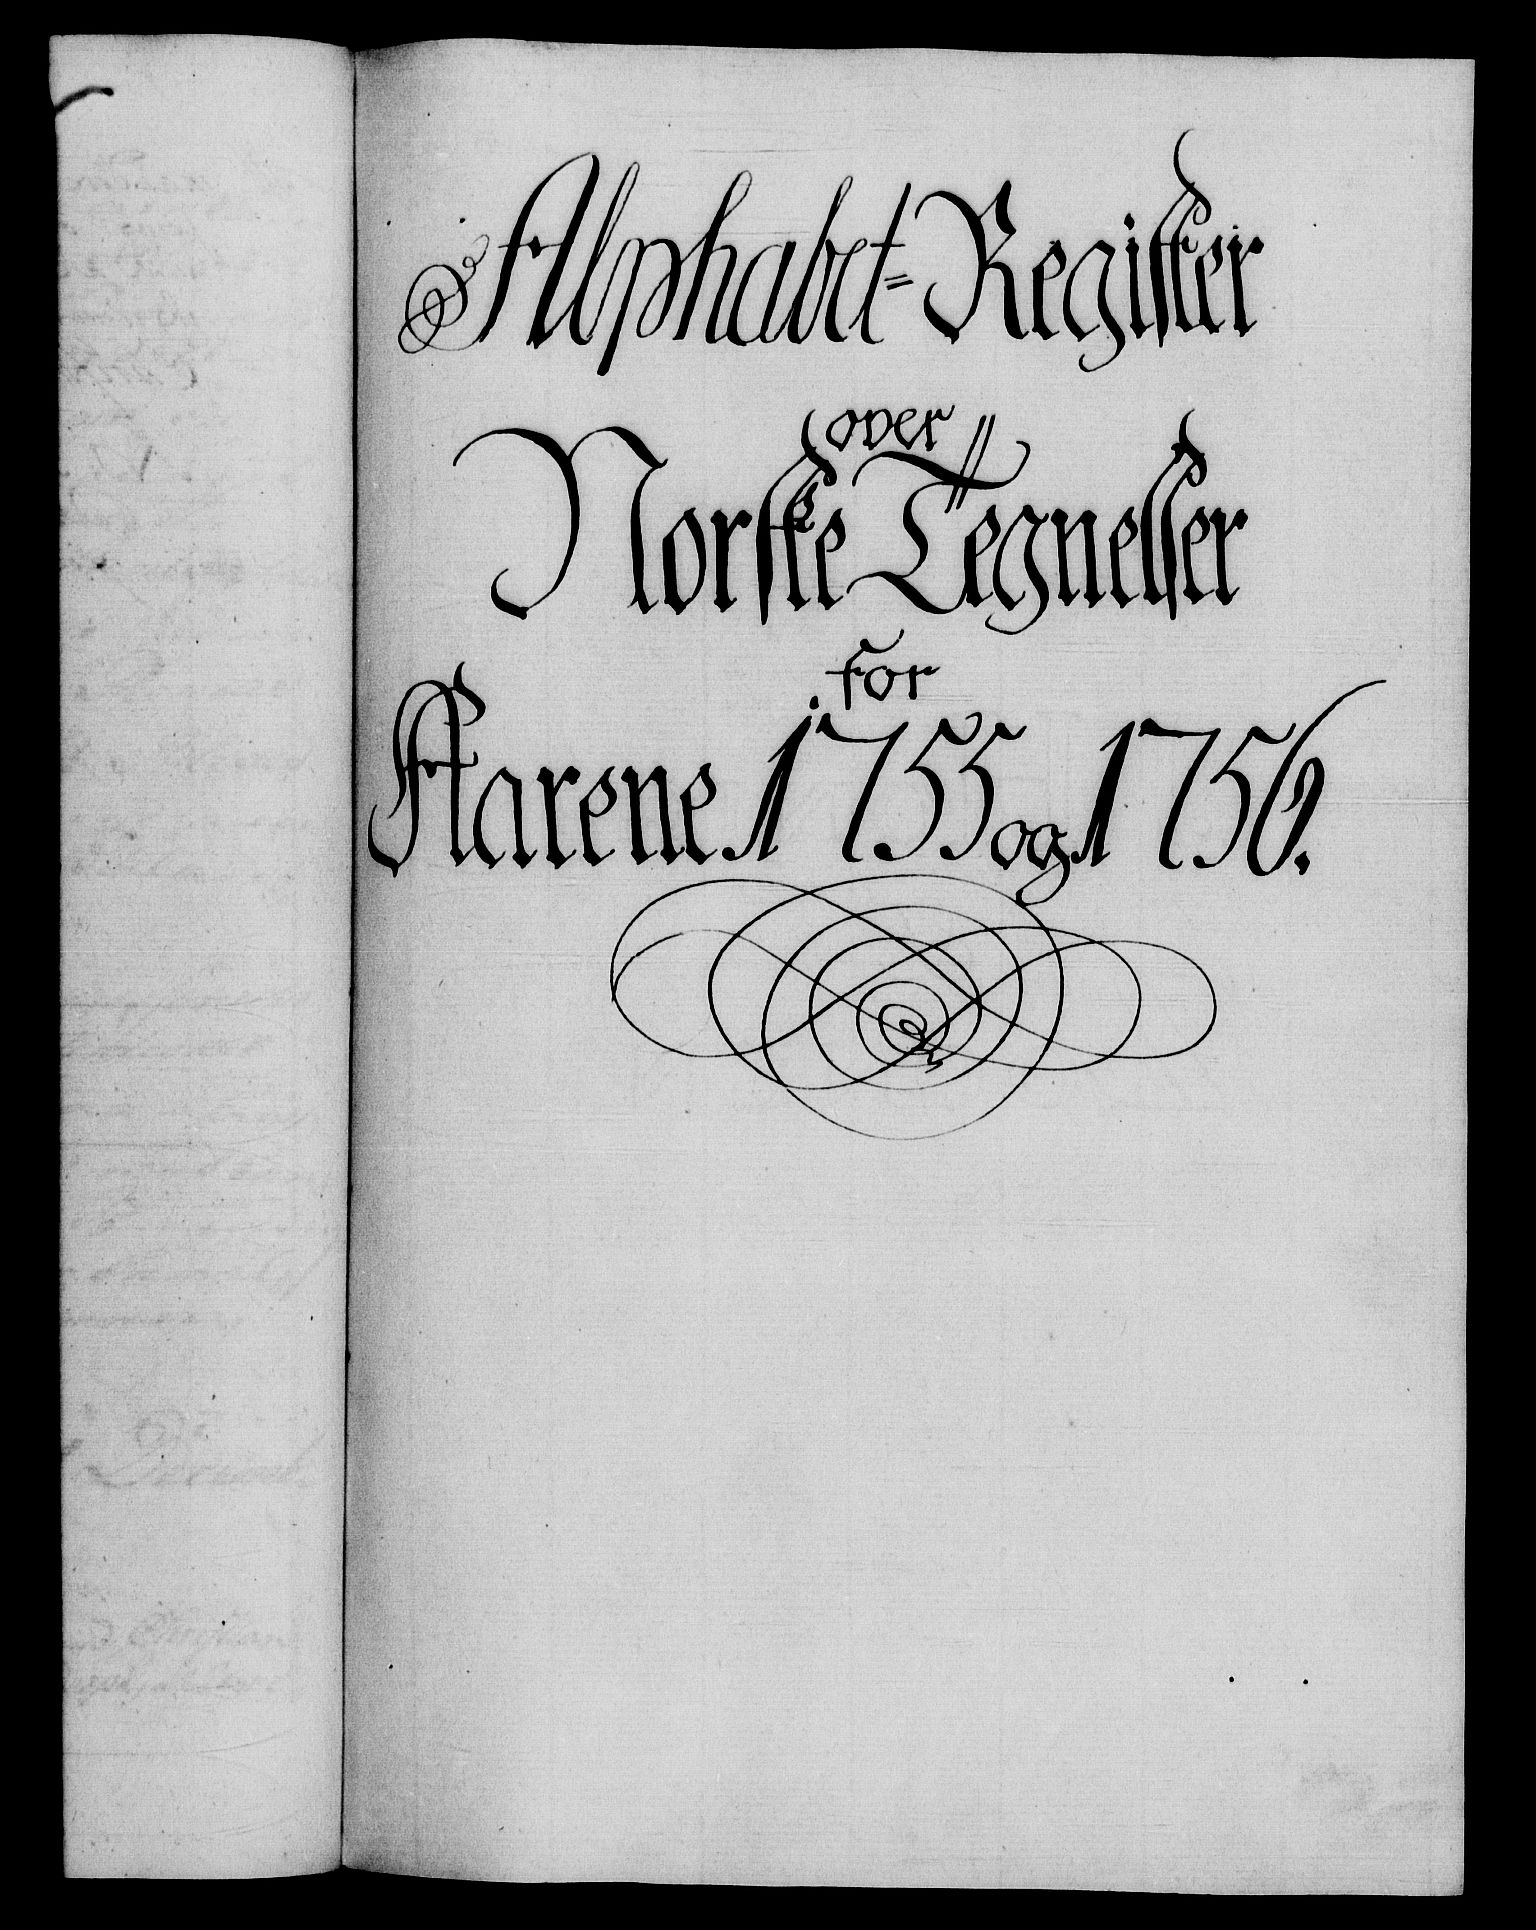 Alphabet=Register
over
Norske Tegnelser
for
Aarene 1755 og 1756.